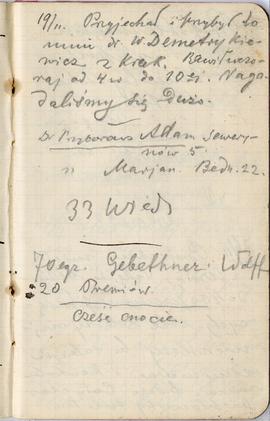 19/11. Przyjechał i przybył do
mnie dr. W. Demetrykie-
wicz z Krak. Bawił wczo-
raj od 4 w do 10 ej. Naga-
daliśmy się dużo.
Dr Przyborowski Adam Sewery-
nów 5.
" Marjan. Bedn. 22.
33 Wied
70 egz. Gebethner i Wolff
20 Premiów
Cześć cnocie.